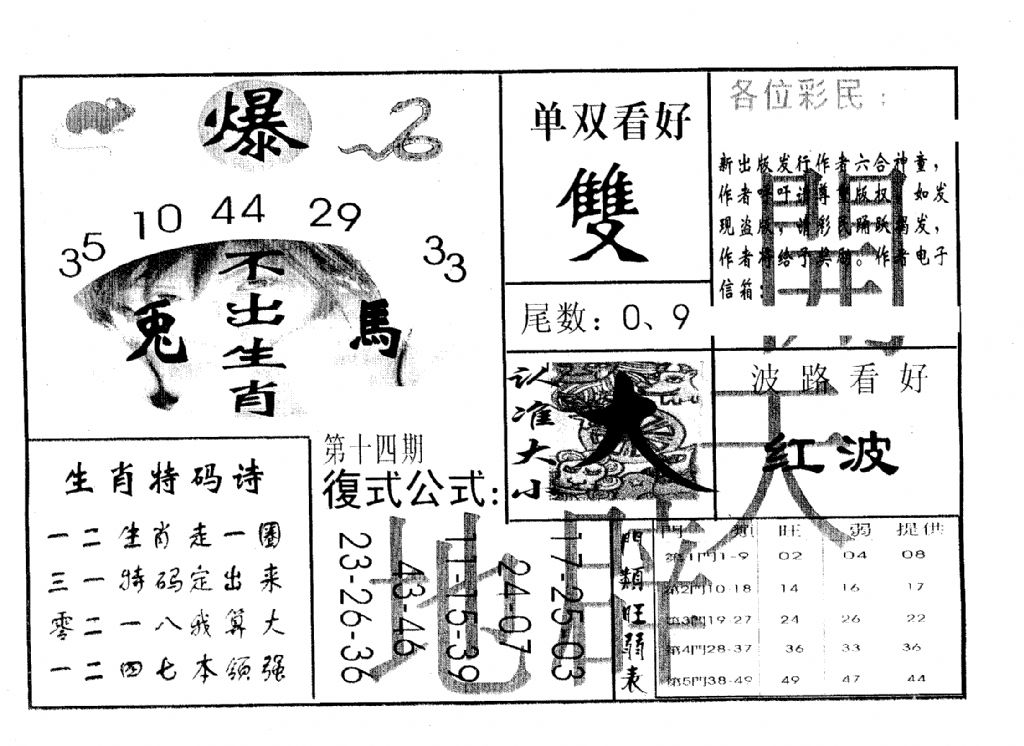 爆
35 10 44 29 33
不出生肖
兔
馬
单双看好
雙
尾数：0、9
各位彩民：
新出版发行作者六合神童，
作者呼吁请尊重版权，如发
现盗版，请彩民踊跃揭发，
作者将给予奖励。作者电子
信箱：
認准大小
大
波路看好
红波
生肖特码诗
一二生肖走一圈
三一特码定出来
零二一八我算大
一二四七本领强
第十四期
復式公式:
23-26-36
43-46
11-15-39
24-07
17-25-03
天地開旺
門類旺弱表
門 類 旺 弱 提供
第1門1-9 02 04 08
第2門10-18 14 16 17
第3門19-27 24 26 22
第4門28-37 36 33 36
第5門38-49 49 47 44